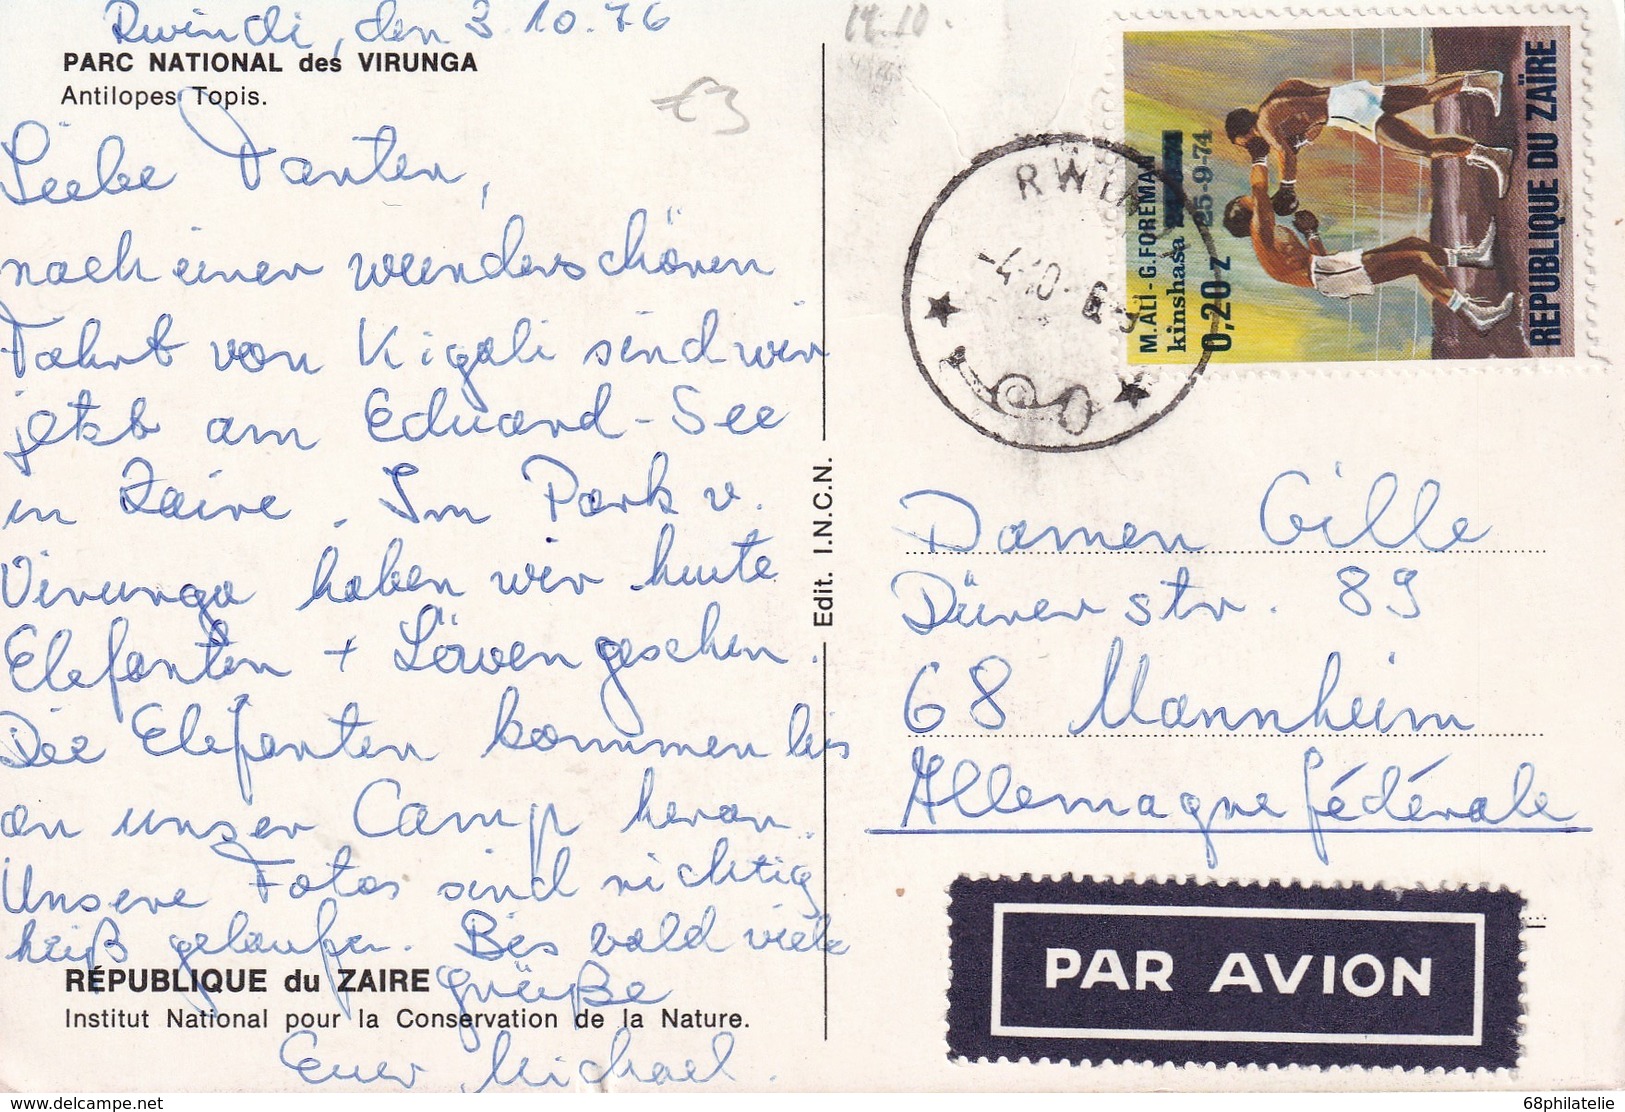 Rwindi, den 3.10.76
PARC NATIONAL des VIRUNGA
Antilopes Topis.
Liebe Tanten,
nach einer wunderschönen
Fahrt von Kigali sind wir
jetzt am Eduard-See
in Zaire. Im Park v.
Virunga haben wir heute
Elefanten + Löwen gesehen.
Die Elefanten kommen bis
an unser Camp heran.
Unsere Fotos sind richtig
heiß gelaufen. Bis bald viele
RÉPUBLIQUE du ZAIRE Grüße
Institut National pour la Conservation de la Nature.
Euer Michael.
Edit. I.N.C.N.
14.10.
€3
REPUBLIQUE DU ZAÏRE
M.ALI-G.FOREMAN
kinshasa 25-9-74
0,20 Z
-4-10-
Damen Gille
Dürerstr. 89
68 Mannheim
Allemagne fédérale
PAR AVION
delcampe.net
68philatelie